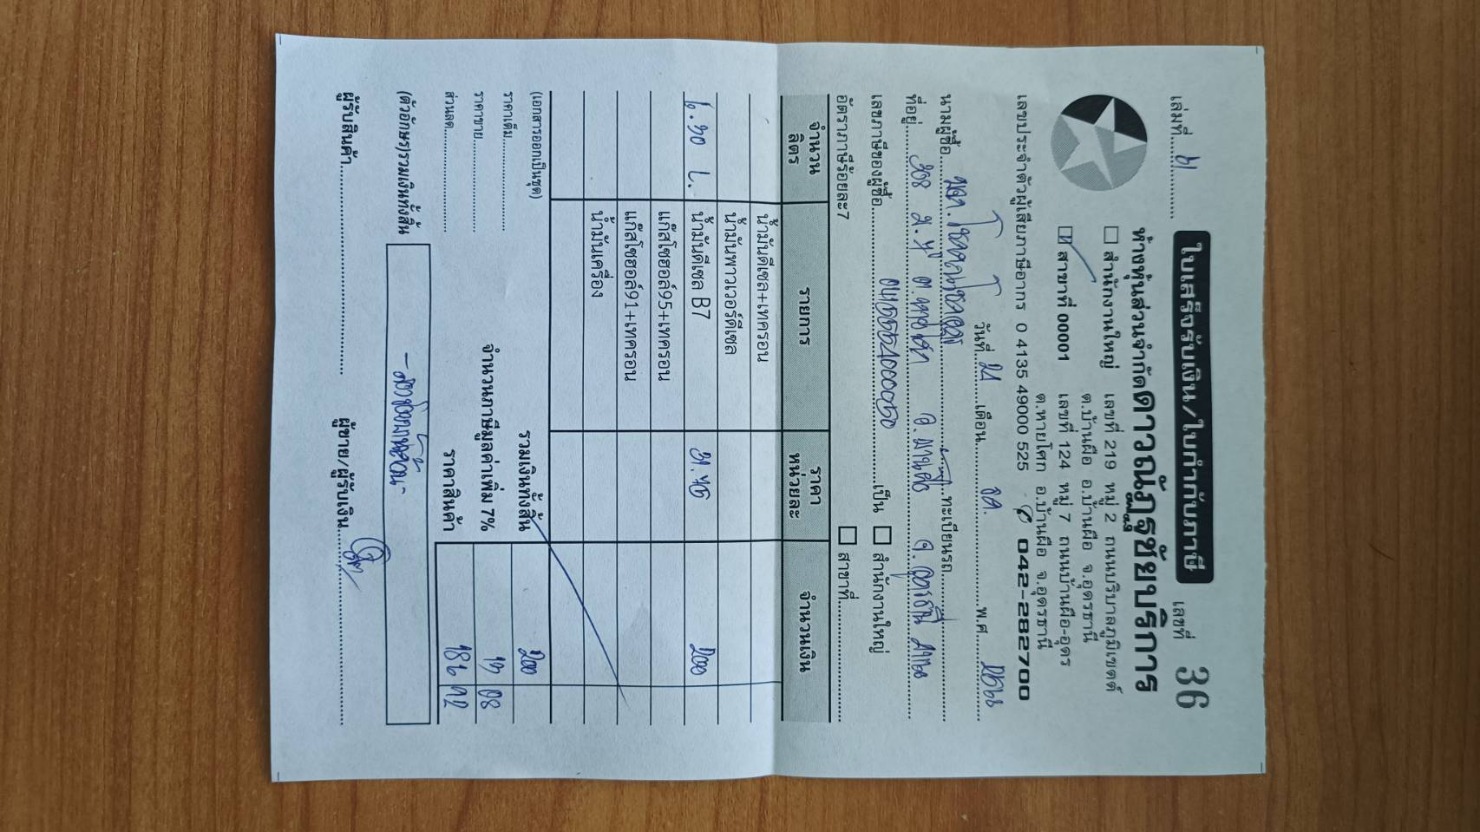 เล่มที่.....๖........ ใบเสร็จรับเงิน/ใบกำกับภาษี เลขที่ 36
ห้างหุ้นส่วนจำกัดดาวณัฏฐชัยบริการ
☐ สำนักงานใหญ่ เลขที่ 219 หมู่ 2 ถนนบริบาลภูมิเขตต์
ต.บ้านผือ อ.บ้านผือ จ.อุดรธานี
☑ สาขาที่ 00001 เลขที่ 124 หมู่ 7 ถนนบ้านผือ-อุดร
ต.หายโศก อ.บ้านผือ จ.อุดรธานี
เลขประจำตัวผู้เสียภาษีอากร 0 4135 49000 525 ✆ 042-282700
วันที่ เดือน ตค. พ.ศ.
นามผู้ซื้อ ทะเบียนรถ
ที่อยู่ 308 ม.๖ ต.หายโศก อ.บ้านผือ จ.อุดรธานี
เลขภาษีของผู้ซื้อ เป็น ☐ สำนักงานใหญ่
อัตราภาษีร้อยละ7 ☐ สาขาที่
จำนวนลิตร รายการ ราคาหน่วยละ จำนวนเงิน
น้ำมันดีเซล+เทครอน
น้ำมันพาวเวอร์ดีเซล
๖.๓๐ L. น้ำมันดีเซล B7 ๓๑.๙๕ ๒๐๐
แก๊สโซฮอล์95+เทครอน
แก๊สโซฮอล์91+เทครอน
น้ำมันเครื่อง
(เอกสารออกเป็นชุด) รวมเงินทั้งสิ้น ๒๐๐
ราคาเต็ม จำนวนภาษีมูลค่าเพิ่ม 7% ๑๓ 08
ราคาขาย ราคาสินค้า ๑๘๖ ๙๒
ส่วนลด
(ตัวอักษร)รวมเงินทั้งสิ้น - สองร้อยบาทถ้วน -
ผู้รับสินค้า ผู้ขาย/ผู้รับเงิน